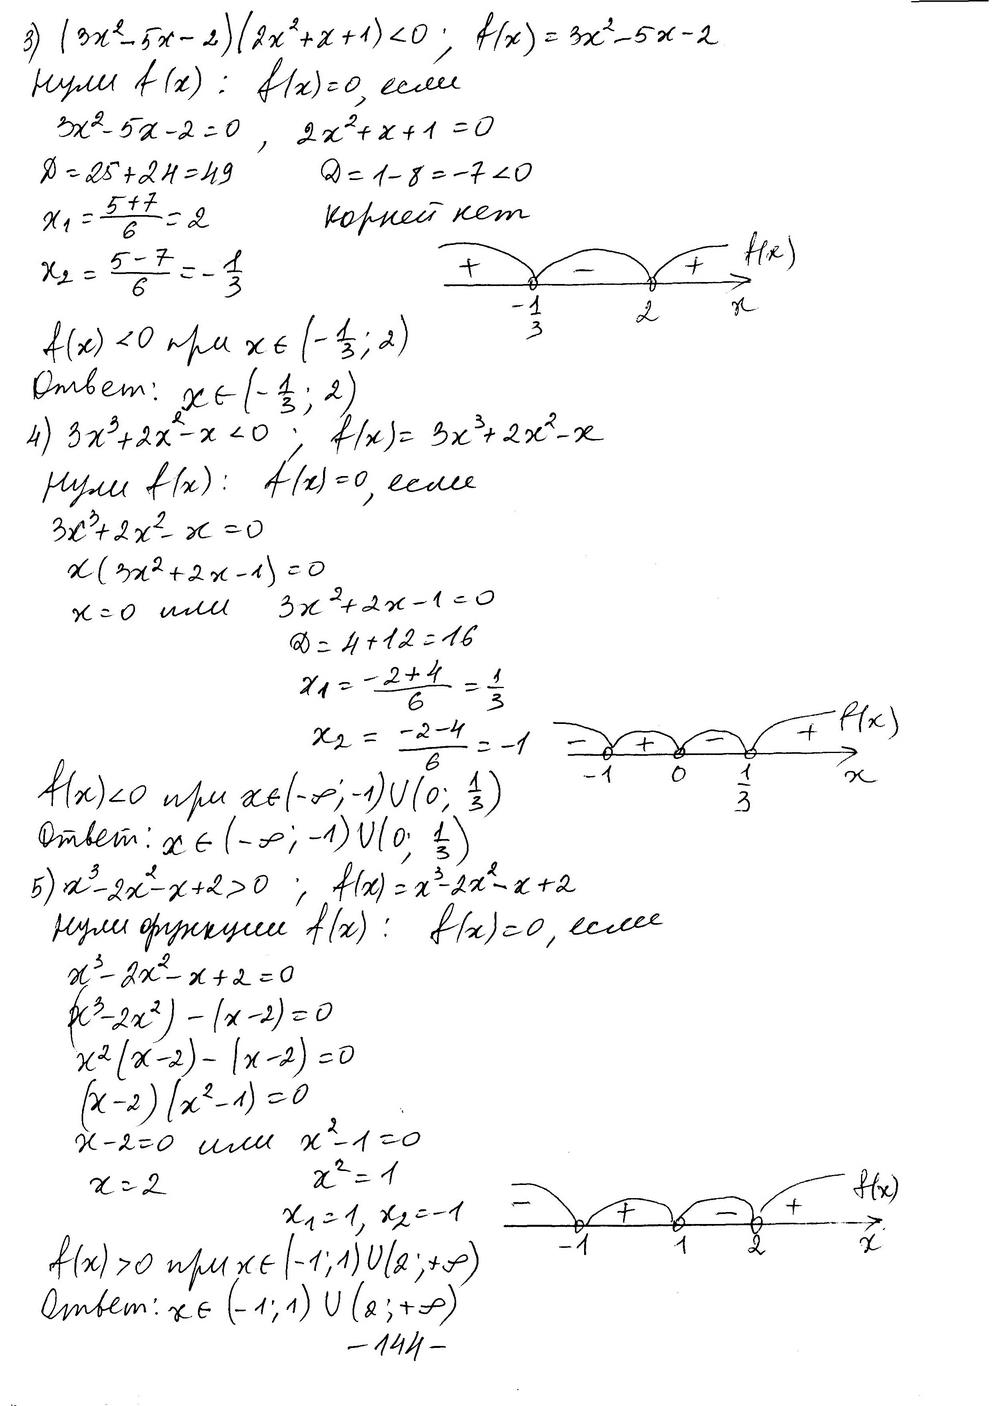 3) (3x²-5x-2)(2x²+x+1)<0 ; f(x)=3x²-5x-2
Нули f(x): f(x)=0, если
3x²-5x-2=0 , 2x²+x+1=0
D=25+24=49 D=1-8=-7<0
x₁=(5+7)/6=2 корней нет
x₂=(5-7)/6=-1/3
+ - + f(x)
-1/3 2 x
f(x)<0 при x∈(-1/3; 2)
Ответ: x∈(-1/3; 2)
4) 3x³+2x²-x<0 ; f(x)=3x³+2x²-x
Нули f(x): f(x)=0, если
3x³+2x²-x=0
x(3x²+2x-1)=0
x=0 или 3x²+2x-1=0
D=4+12=16
x₁=(-2+4)/6=1/3
x₂=(-2-4)/6=-1
- + - + f(x)
-1 0 1/3 x
f(x)<0 при x∈(-∞;-1)∪(0; 1/3)
Ответ: x∈(-∞; -1)∪(0; 1/3)
5) x³-2x²-x+2>0 ; f(x)=x³-2x²-x+2
Нули функции f(x): f(x)=0, если
x³-2x²-x+2=0
(x³-2x²)-(x-2)=0
x²(x-2)-(x-2)=0
(x-2)(x²-1)=0
x-2=0 или x²-1=0
x=2 x²=1
x₁=1, x₂=-1
- + - + f(x)
-1 1 2 x
f(x)>0 при x∈(-1;1)∪(2;+∞)
Ответ: x∈(-1;1)∪(2;+∞)
-144-